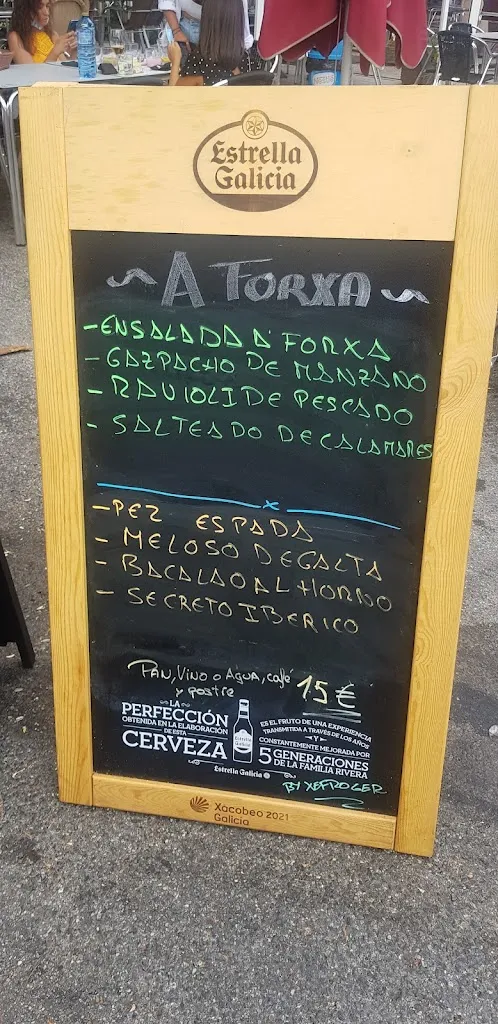 Estrella
Galicia
A FORXA
- ENSALADA A' FORXA
- GAZPACHO DE MANZANO
- RAVIOLI DE PESCADO
- SALTEADO DE CALAMARES
- PEZ ESPADA
- MELOSO DE GALTA
- BACALAO AL HORNO
- SECRETO IBERICO
PAN, VINO O AGUA, café
y postre
15€
LA
PERFECCIÓN
OBTENIDA EN LA ELABORACIÓN
DE ESTA
CERVEZA
ES EL FRUTO DE UNA EXPERIENCIA
TRANSMITIDA A TRAVÉS DE LOS AÑOS
Y
CONSTANTEMENTE MEJORADA POR
5 GENERACIONES
DE LA FAMILIA RIVERA
Estrella Galicia
BY XEFROGER
Xacobeo 2021
Galicia